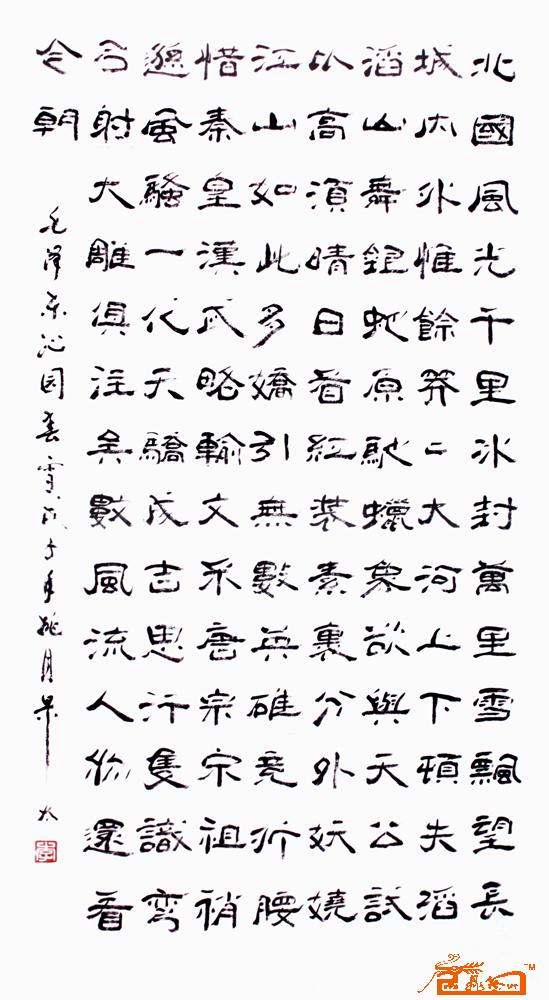 北國風光千里冰封萬里雪飄望長
城內外惟餘莽二大河上下頓失滔
滔山舞銀蛇原馳蠟象欲與天公試
比高須晴日看紅裝素裹分外妖嬈
江山如此多嬌引無數英雄竞折腰
惜秦皇漢武略輸文采唐宗宋祖稍
遜風騷一代天驕成吉思汗隻識彎
弓射大雕俱往矣數風流人物還看
今朝
毛澤東沁園春雪戊子年桃月